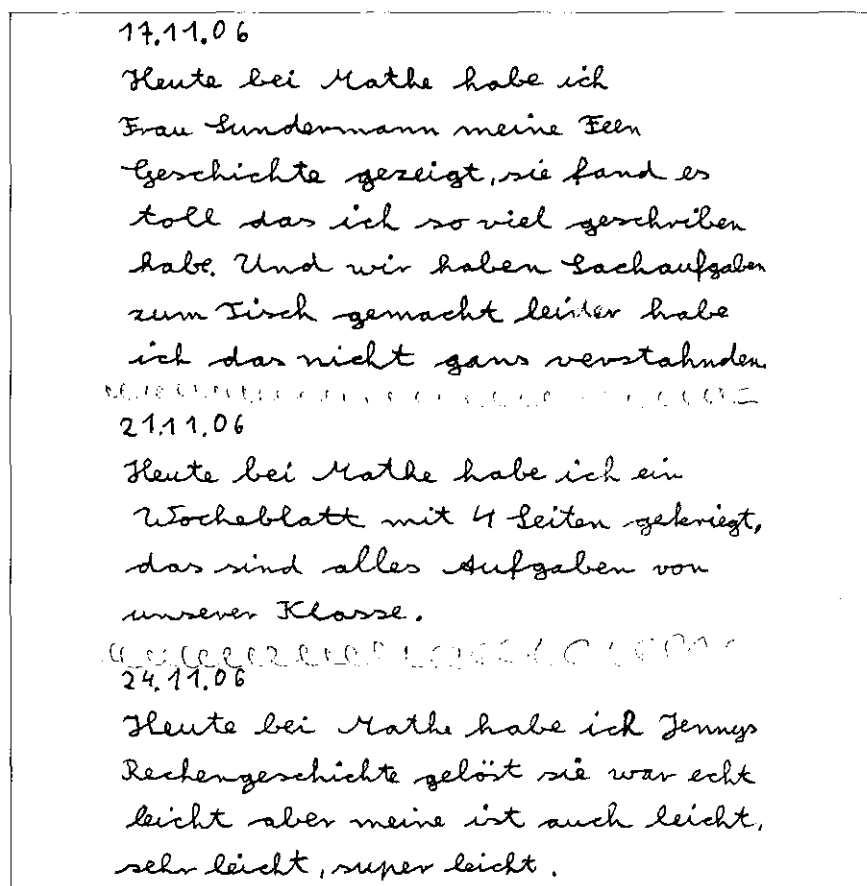 17.11.06
Heute bei Mathe habe ich
Frau Sundermann meine Feen
Geschichte gezeigt, sie fand es
toll das ich so viel geschriben
habe. Und wir haben Sachaufgaben
zum Tisch gemacht leider habe
ich das nicht gans verstahnden.
21.11.06
Heute bei Mathe habe ich ein
Wocheblatt mit 4 Seiten gekriegt,
das sind alles Aufgaben von
unserer Klasse.
24.11.06
Heute bei Mathe habe ich Jennys
Rechengeschichte gelöst sie war echt
leicht aber meine ist auch leicht,
sehr leicht, super leicht.